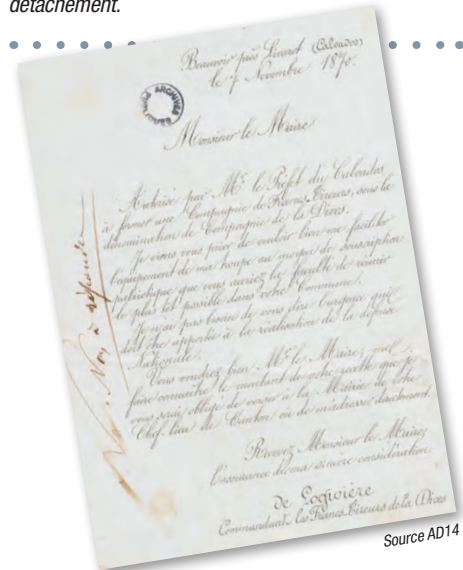 détachement.
Beauvoir près Livarot (Calvados)
le 7 Novembre 1870.
ARCHIVES
Monsieur le Maire
Autorisé par Mr le Préfet du Calvados
à former une Compagnie de Francs Tireurs, sous la
dénomination de Compagnie de la Dives.
Je viens vous prier de vouloir bien me faciliter
l'équipement de ma troupe au moyen de souscription
patriotique que vous auriez la faculté de réunir
le plus tôt possible dans votre Commune.
Je n'ai pas besoin de vous dire l'urgence qu'il
doit être apporté à la réalisation de la défense
Nationale.
Vous voudrez bien Mr le Maire, me
faire connaître le montant de votre recette que je
vous serai obligé de verser à la Mairie de votre
Chef lieu de Canton ou de m'adresser directement.
Recevez Monsieur le Maire,
l'assurance de ma sincère considération
de Logivière
Commandant les Francs Tireurs de la Dives
à répondre
Source AD14